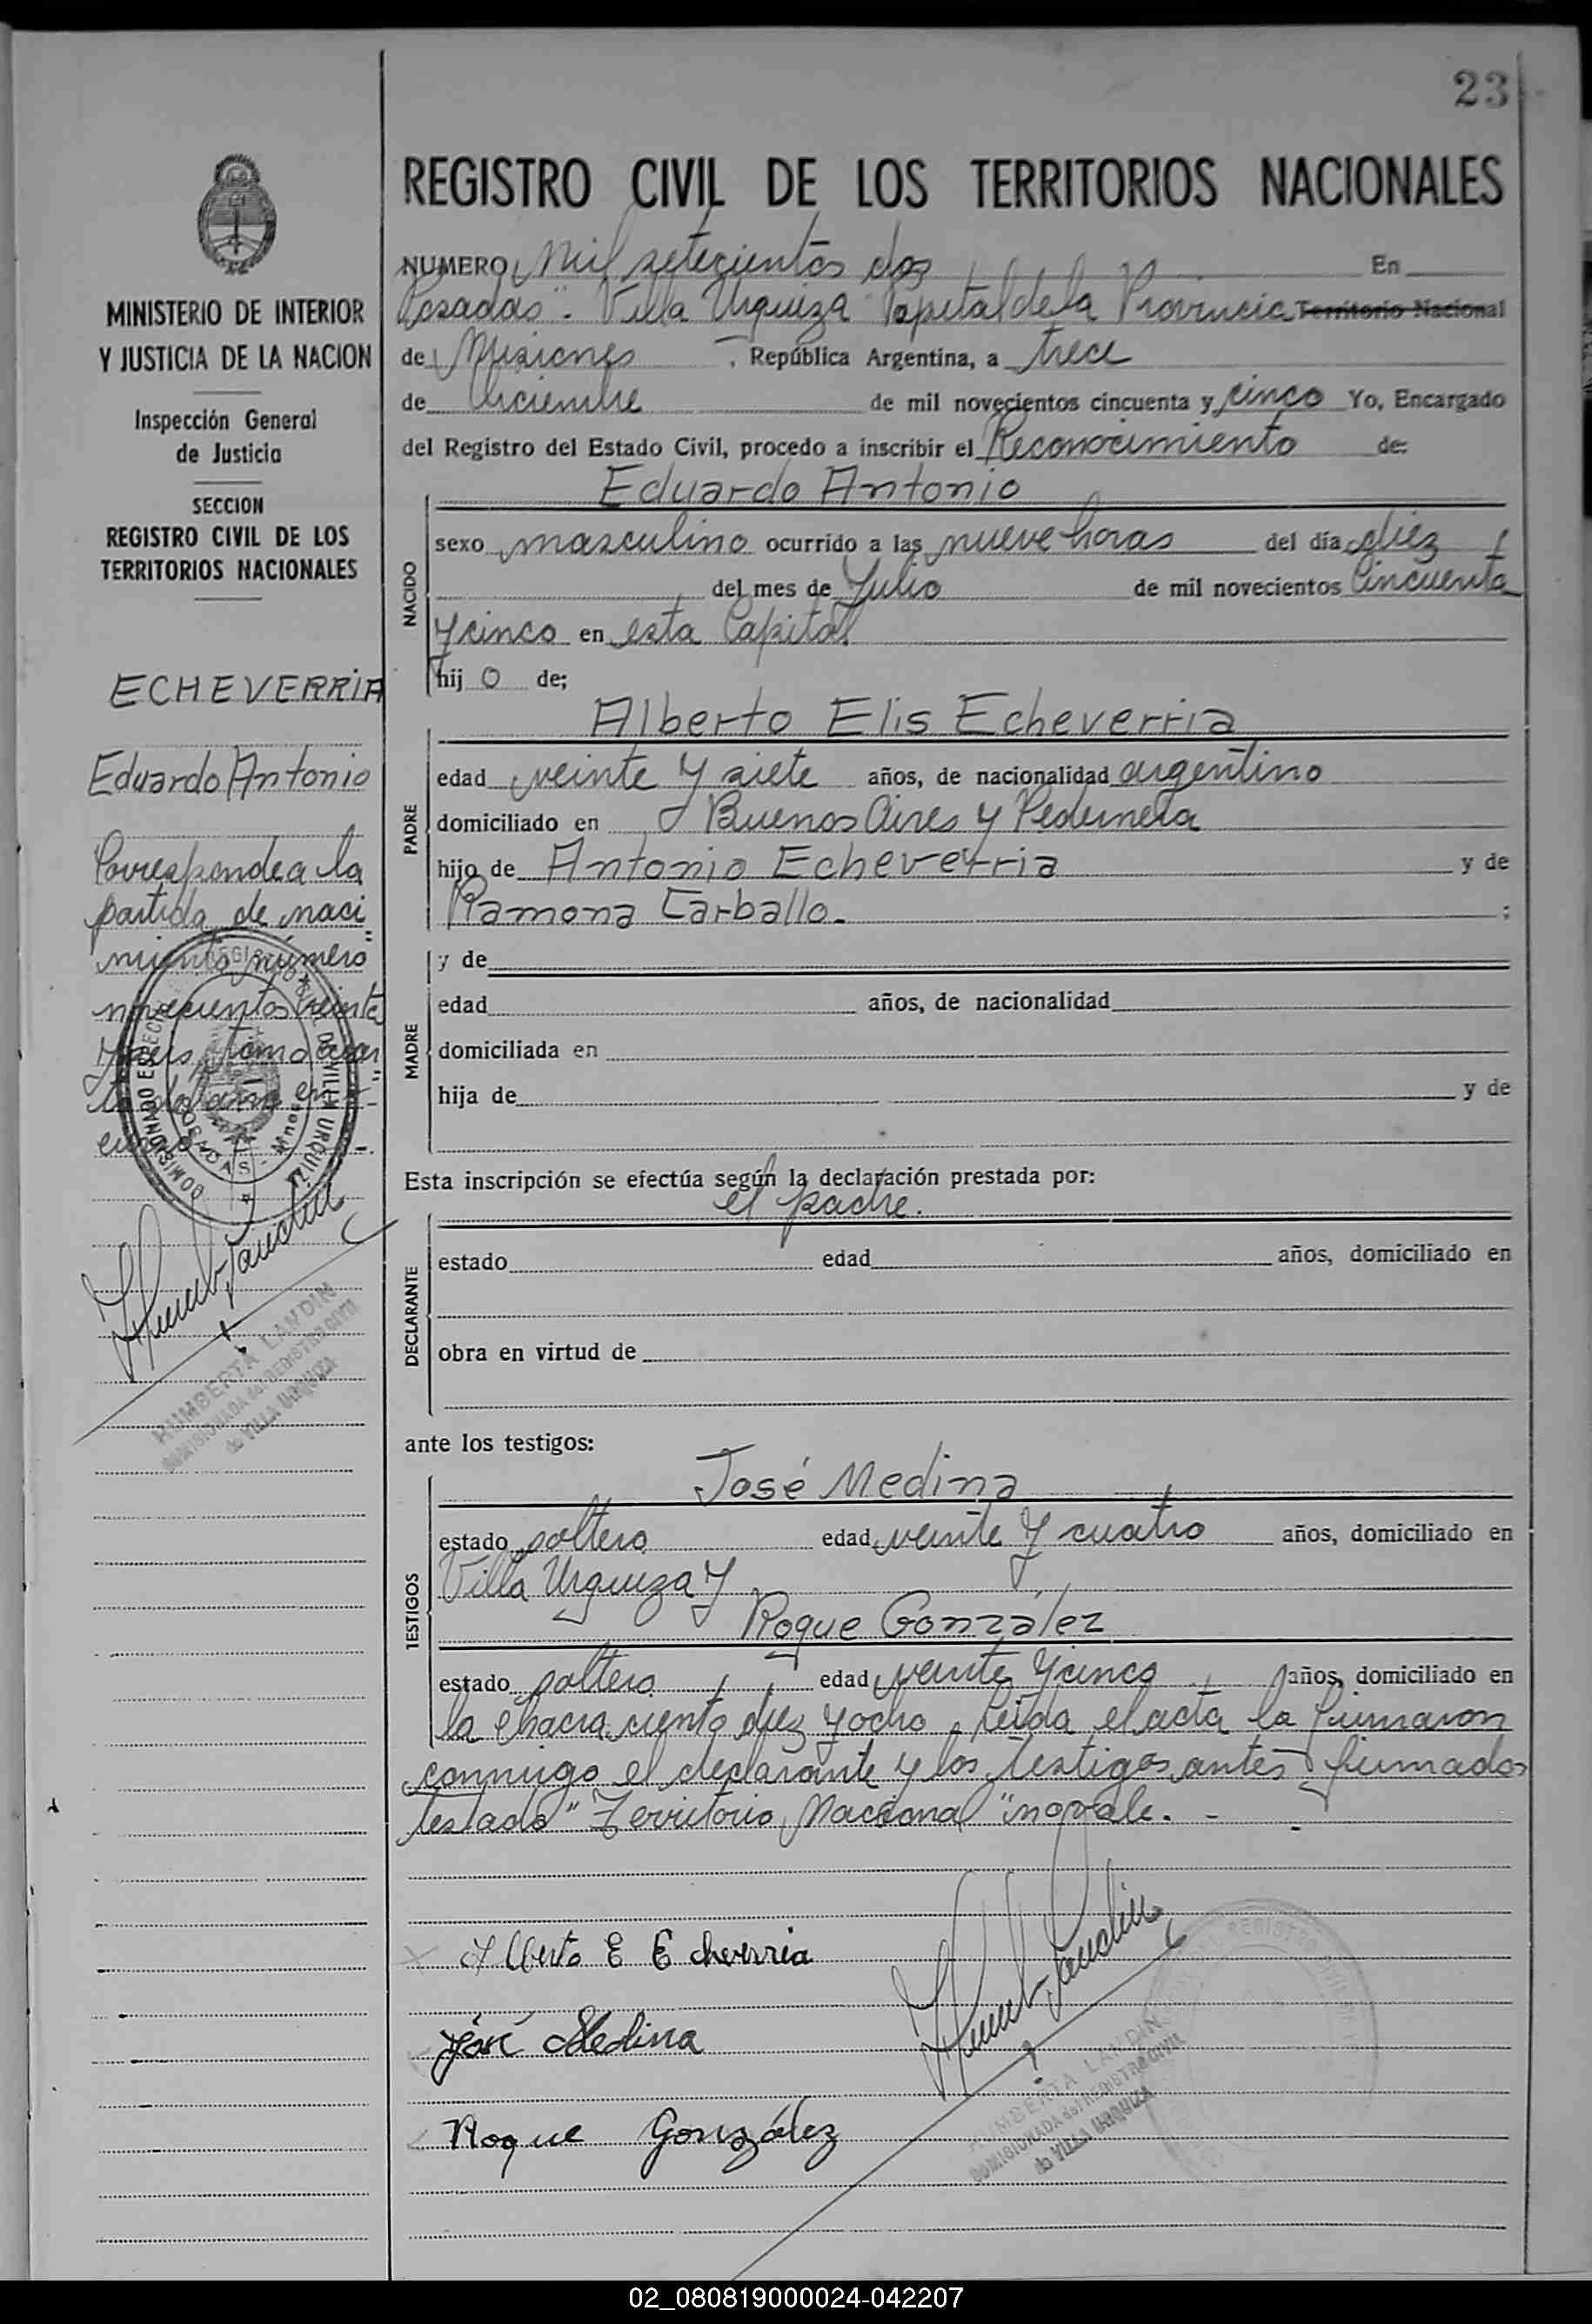 23
MINISTERIO DE INTERIOR
Y JUSTICIA DE LA NACION
Inspección General
de Justicia
SECCION
REGISTRO CIVIL DE LOS
TERRITORIOS NACIONALES
ECHEVERRIA
Eduardo Antonio
Corresponde a la
partida de naci
miento número
novecientos veinta
REGISTRO CIVIL DE LOS TERRITORIOS NACIONALES
NUMERO Mil setecientos dos En
Posadas". Villa Urquiza Capital de la Provincia Territorio Nacional
de Misiones. República Argentina, a trece
de Diciembre de mil novecientos cincuenta y cinco Yo, Encargado
del Registro del Estado Civil, procedo a inscribir el Reconocimiento de:
Eduardo Antonio
NACIDO
sexo masculino ocurrido a las nueve horas del día diez
del mes de Julio de mil novecientos Cincuenta
y cinco en esta Capital
hij o de;
PADRE
Alberto Elis Echeverria
edad veinte y siete años, de nacionalidad argentino
domiciliado en Buenos Aires y Pedernera
hijo de Antonio Echeverria y de
Ramona Carballo. ;
MADRE
y de
edad años, de nacionalidad
domiciliada en
hija de y de
Esta inscripción se efectúa según la declaración prestada por:
el padre.
DECLARANTE
estado edad años, domiciliado en
obra en virtud de
ante los testigos:
TESTIGOS
José Medina
estado soltero edad veinte y cuatro años, domiciliado en
Villa Urquiza y
Roque González
estado soltero edad veinte y cinco años, domiciliado en
la chacra ciento diez y ocho, Leída el acta la firmaron
conmigo el declarante y los testigos antes firmados
testado "Territorio Nacional" no vale. -
Alberto E Echeverria
José Medina
Roque González
HUMBERTA LANDIN
COMISIONADA del REGISTRO CIVIL
de VILLA URQUIZA
02_080819000024-042207